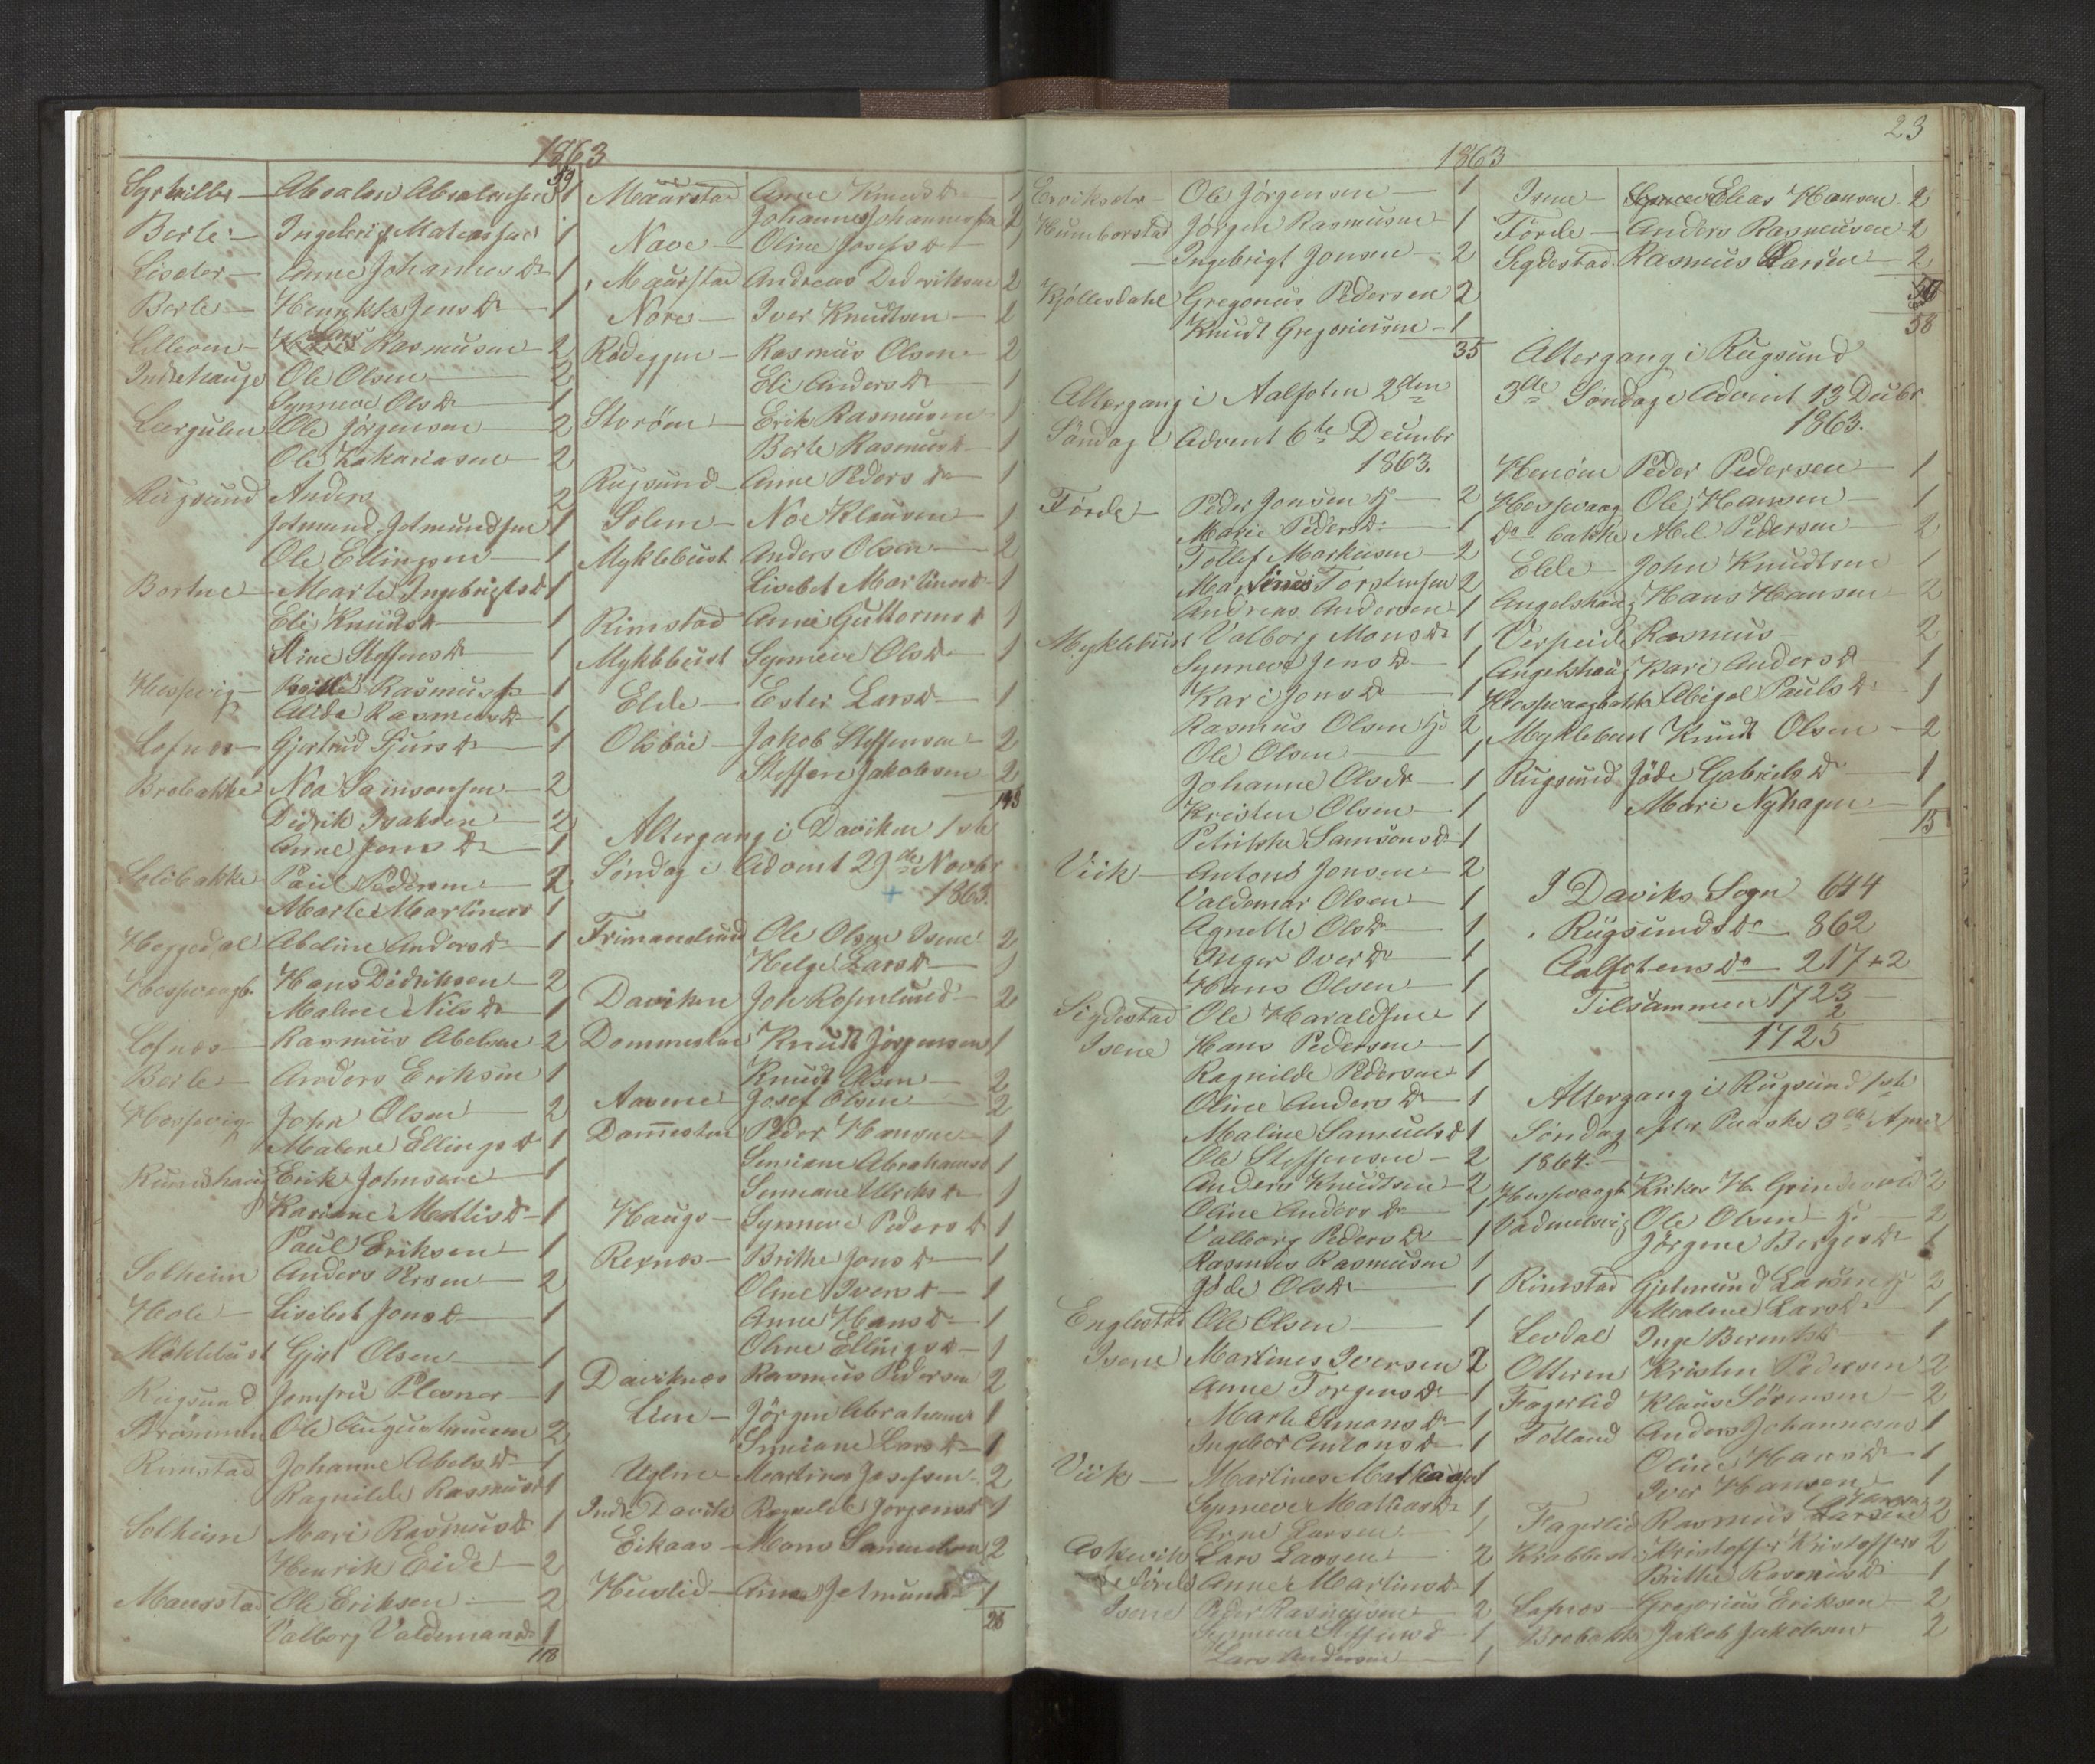 1863
59
Absalon Absalonsen 1
Berle Ingeleiv Matiasse 1
Liseter Anne Johannesdr 1
Berle Henrikke Jensdr 1
Rasmusen 2
Indrehauge Ole Olsen 2
Synneve Olsdr 1
Lergulen Ole Jørgensen 2
Ole Zakariasen 2
Rugsund Anders 2
Jetmund Jetmundsen 1
Ole Ellingsen 1
Bortne Marte Ingebrigtsdr 1
Eli Knudsdr 1
Stine Steffensdr 1
Hessevig Rasmus 1
Alida Rasmusdr 1
Lofnes Gjertrud Sjursdr 1
Brobakke Noa Samsonsen 2
Didrik Isaksen 2
Anne Jensdr 1
Solibakke Paul Pedersen 2
Marte Martines 1
Heggedal Abeline Andersdr 1
Hessevaagb. Hans Didriksen 2
Malene Nilsdr 1
Lofnes Rasmus Abelsen 2
Berle Anders Eriksen 1
Hessevig John Olsen 2
Malene Ellingsdr 1
Rundehaug Erik Johnsen 1
Kariane Mallisdr 1
Paul Eriksen 1
Solheim Anders Persen 2
Hole Lisebet Jonsdr 1
Møklebust Gjert Olsen 1
Rugsund Jomfru Plesner 1
Strømmen Ole Augustinusen 2
Rimstad Johanne Abelsdr 1
Ragnilde Rasmusdr 1
Solheim Mari Rasmusdr 1
Henrik Eide 2
Maurstad Ole Eriksen 2
Valborg Valdemarsdr 1
118
Maurstad Anne Knudsdr 1
Johannes Johannessen 2
Nave Oline Josefsdr 1
Maurstad Andreas Dideriksen 2
Nore Iver Knudtsen 2
Rødeggen Rasmus Olsen 2
Eli Andersdr 1
Storøen Erik Rasmusen 1
Berte Rasmusdr 1
Rugsund Anne Pedersdr 1
Solem Noe Klausen 1
Myklebust Anders Olsen 2
Lisebet Martinesdr 1
Rimstad Anne Guttormsdr 1
Myklebust Synneve Olsdr 1
Elde Ester Larsdr 1
Olsbøe Jakob Steffensen 2
Steffen Jakobsen 2
143
Altergang i Daviken 1ste
Søndag i Advent 29de Novbr
1863.
Frimandslund Ole Olsen Isene 2
Helge Larsdr 1
Daviken Joh Rosenlund 2
Dommestein Knudt Jørgensen 1
Knudt Olsen 2
Aasene Josef Olsen 2
Dommestein Peder Hansen 1
Semiane Abrahamsd 1
Semiane Ulriksdr 1
Hauge Synneve Pedersdr 1
Rexnes Brithe Jonsdr 1
Oline Iversdr 1
Anne Hansdr 1
Oline Ellingsdr 1
Daviknes Rasmus Pedersen 2
Lien Jørgen Abrahams 1
Semiane Larsdr 1
Uglen Martinus Josefsen 2
Indre Davik Ragnilde Jørgensdr 1
Eikaas Mons Samuelsen 2
Huslid Anne Jetmunds 1
26
23
1863
Eriksete Ole Jørgensen 1
Humborstad Jørgen Rasmusen 1
Ingebrigt Jonsen 2
Kjøllesdahl Gregorius Pedersen 2
Knudt Gregoriusen 1
35
Altergang i Aalfoten 2den
Søndag i Advent 6te Decembr
1863.
Førde Peder Jonsen 2
Marie Pedersdr 1
Tollef Markusen 2
Torstensen 2
Andreas Andersen 1
Myklebust Valborg Monsdr 1
Synneve Jensdr 1
Kari Jonsdr 1
Rasmus Olsen 2
Ole Olsen 1
Johanne Olsdr 1
Kristen Olsen 1
Petrikke Samsonsdr 1
Viik Antons Jonsen 2
Valdemar Olsen 1
Agnette Olsdr 1
Inger Iversdr 1
Hans Olsen 1
Sigdestad Ole Haraldsen 1
Isene Hans Pedersen 1
Ragnilde Pedersen 1
Oline Andersdr 1
Maline Samuelsdr 1
Ole Steffensen 2
Anders Knudtsen 2
Oline Andersdr 1
Valborg Pedersdr 1
Rasmus Rasmusen 1
Jøde Olsdr 1
Englestad Ole Olsen 1
Isene Martines Iversen 2
Anne Torgersdr 1
Marte Simonsdr 1
Ingebor Antonsdr 1
Viik Martines Mathiassen 1
Synneve Mathiasdr 1
Arne Larsen 1
Askevik Lars Larsen 2
Førde Anne Martinsdr 1
Isene Peder Rasmusen 2
Synneve Steffensd 1
Lars Andersen 1
Isene Elias Hansen 2
Førde Anders Rasmusen 2
Sigdestad Rasmus Larsen 2
58
Altergang i Rugsund
3de Søndag i Advent 13 Decbr
1863.
Henøen Peder Pedersen 1
Hessevaag Ole Hansen 1
do bakke Abel Pedersen 2
Elde John Knudtsen 1
Angelshaug Hans Hansen 2
Verpeide Rasmus 2
Angelshaug Kari Andersdr 1
Hessevaagbakke Abigal Paulsdr 1
Myklebust Knudt Olsen 2
Rugsund Jøde Gabrielsdr 1
Mari Nyhagen 1
15
I Daviks Sogn 644
Rugsunds do 862
Aalfotens do 217 + 2
Tilsammen 1723
2
1725
Altergang i Rugsund 1ste
Søndag efter Paaske 3de April
1864.
Hessevaagb. Kirkes. H. Grindevold 2
Ole Olsen 2
Jørgine Børgesdr 1
Rimstad Gjetmund Larsen 2
Malene Larsdr 1
Levdal Inge Berentsdr 1
Otteren Kristen Pedersen 2
Fagerlid Klaus Sørensen 2
Totland Anders Johannesen 1
Oline Hansdr 1
Iver Hansen 1
Fagerlid Rasmus Hansen 2
Krabbest. Kristoffer Kristoffers 2
Brithe Rasmusdr 1
Lofnes Gregorius Eriksen 2
Brobakke Jakob Jakobsen 2